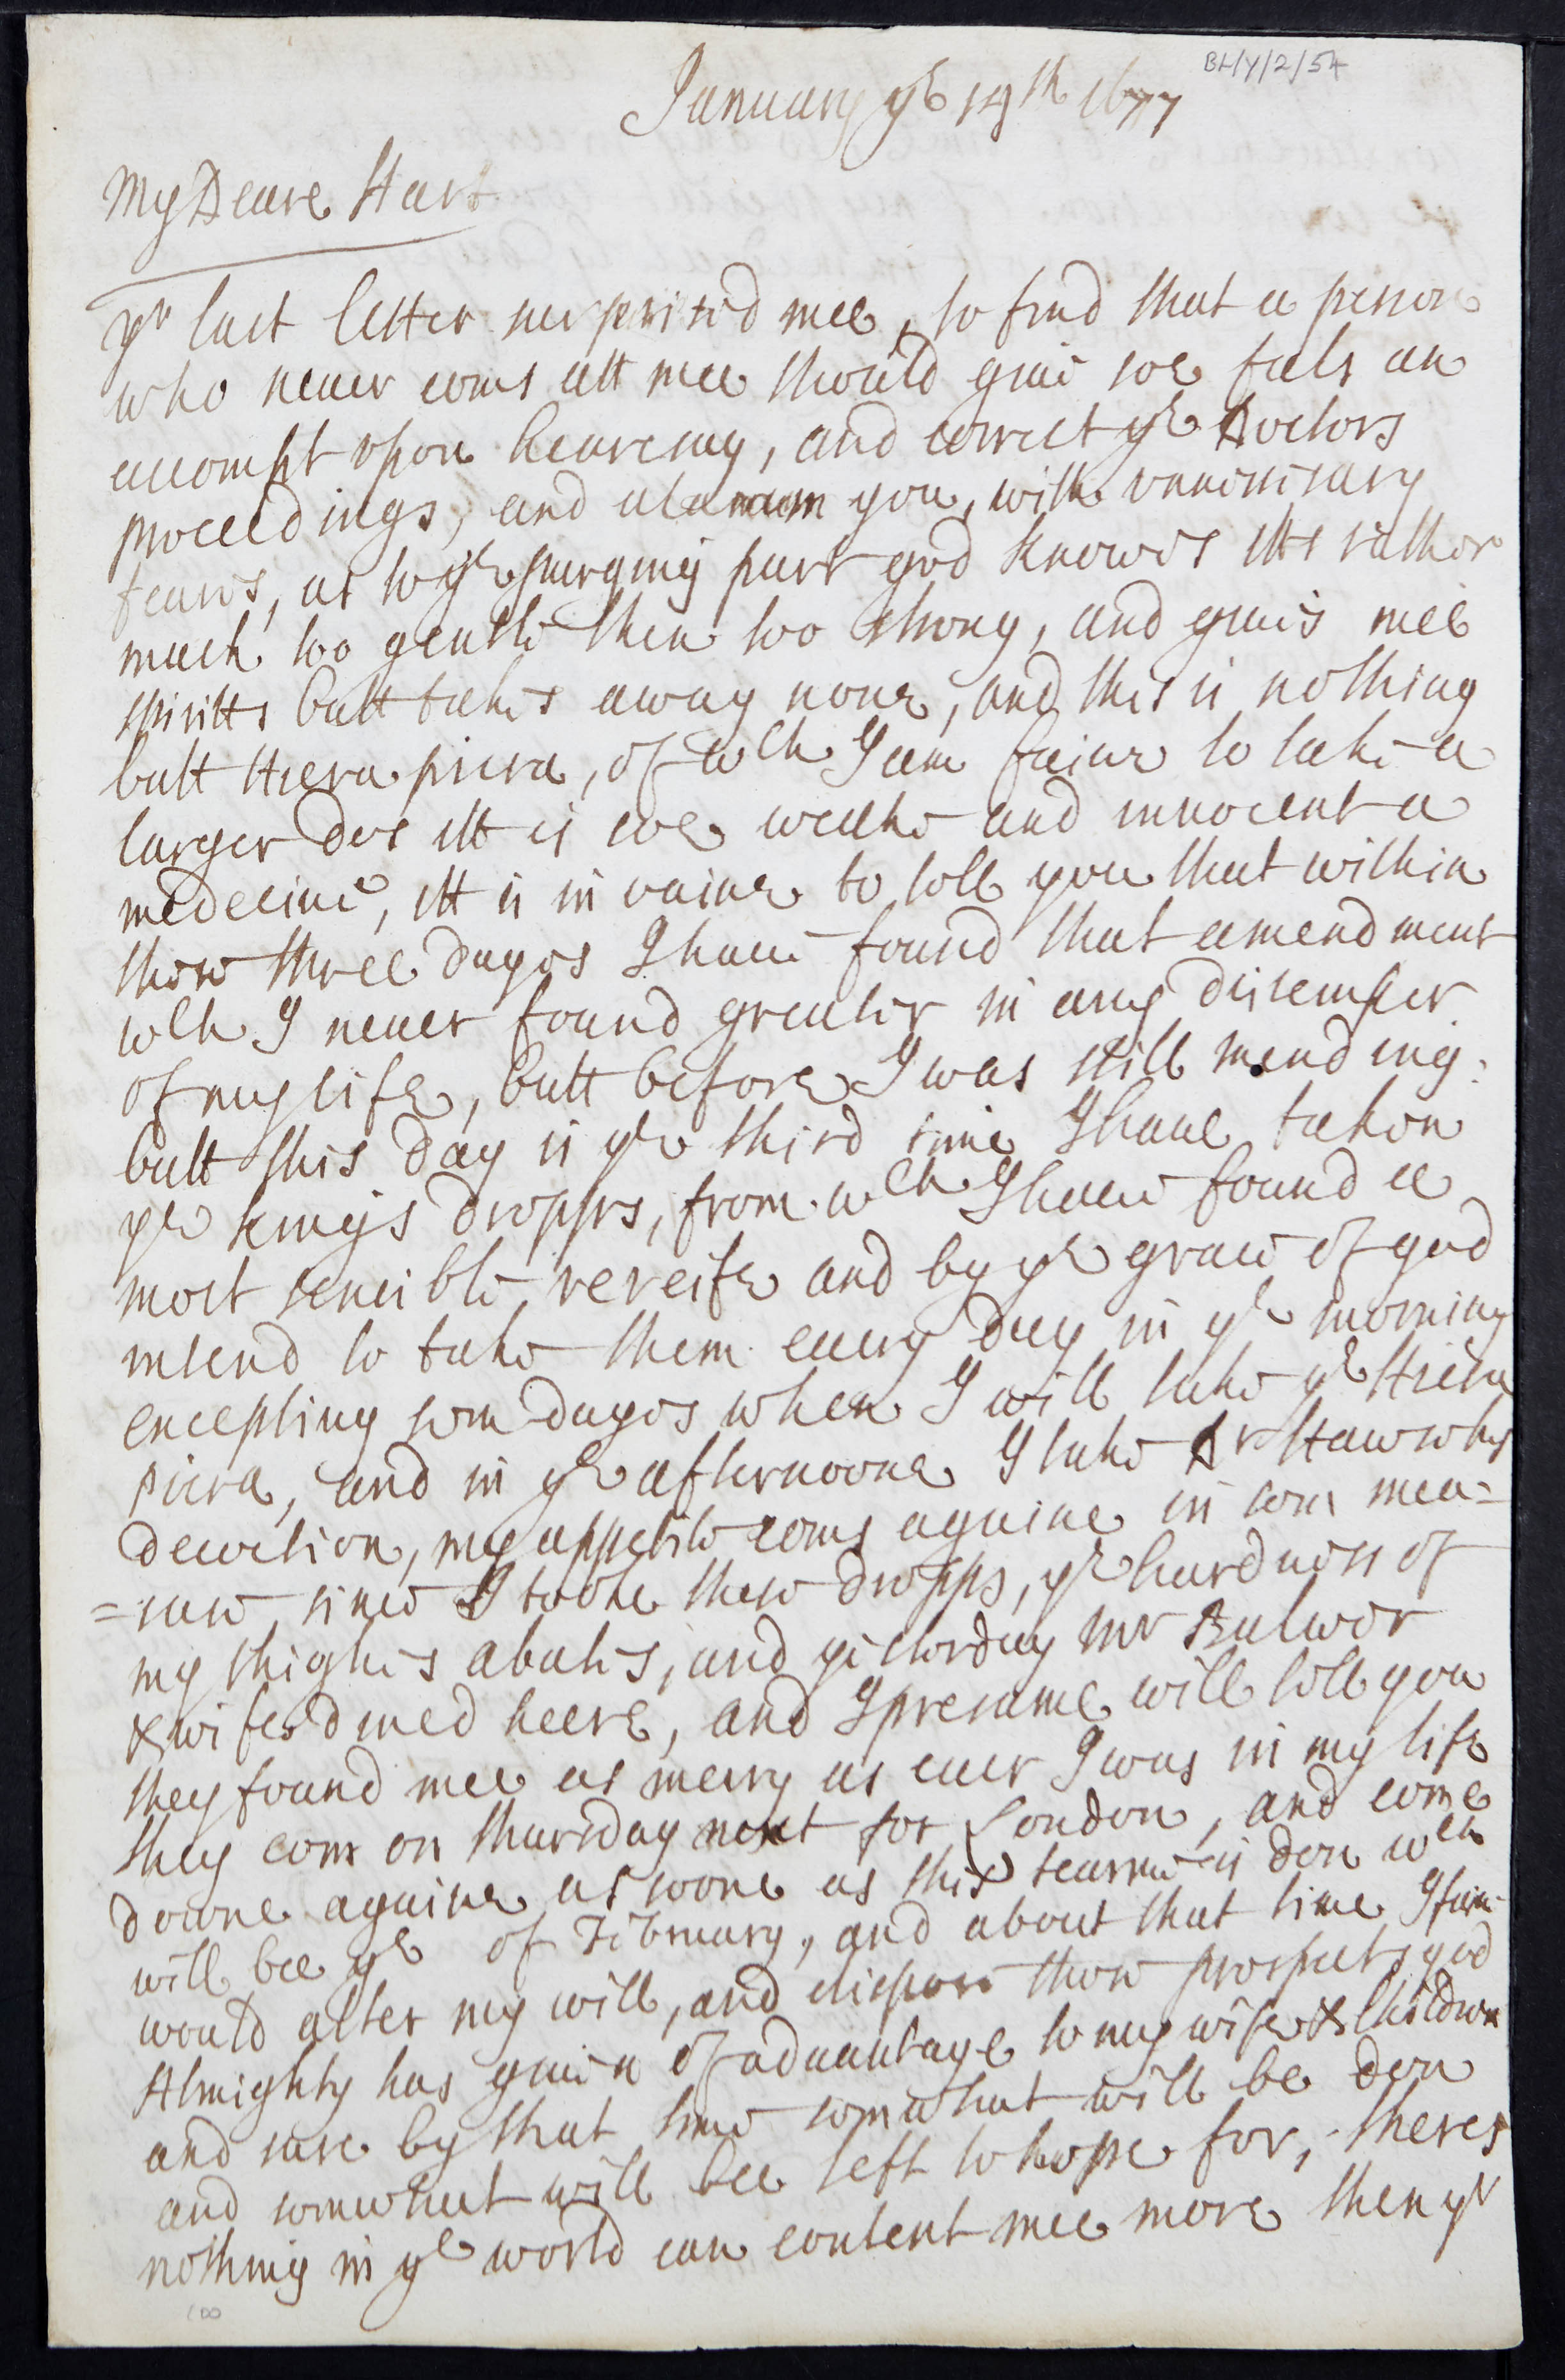 BL/Y/2/54
January ye 14th 1677
My Deare Hart
yr last letter surprised mee, to find that a person
who neuer coms att mee should giue soe fals an
accompt upon hearesay, and correct ye Doctors
proceedings, and alarum you, with vnnecissary
feares, as to ye purging part god knowes itts rather
much too gentle then too strong, and giues mee
spiritts butt takes away none, and this is nothing
butt Hiera picra, of wch I am faine to take a
larger dos itt is soe weake and innocent a
medecine, itt is in vaine to tell you that within
thes three dayes I haue found that amendment
wch I neuer found greater in any distemper
of my life, butt before I was still mending:
butt this day is ye third time I haue taken
ye kings dropps, from wch I haue found a
most sensible releife and by ye grace of god
intend to take them euery day in ye morning
excepting som dayes when I will take ye Hiera
picra, and in ye afternoone I take Dr Hawwhys
decoction, my appetite coms againe in som mea=
=sure since I tooke thes dropps, ye hardness of
my thighes abates, and yisterday mr Bulwer
& wife dined heere, and I presume will tell you
they found mee as merry as euer I was in my life
they com on thursday next for London, and come
downe againe as soone as this tearme is don wch
will bee ye of Febrnary, and about that time I fain
would alter my will, and dispose those prospects god
Almighty has giuen of aduantage to my wife & Children
and sure by that time somwhat will be don
and somwhat will bee left to hope for, theres
nothing in ye world can content mee more then yr
100